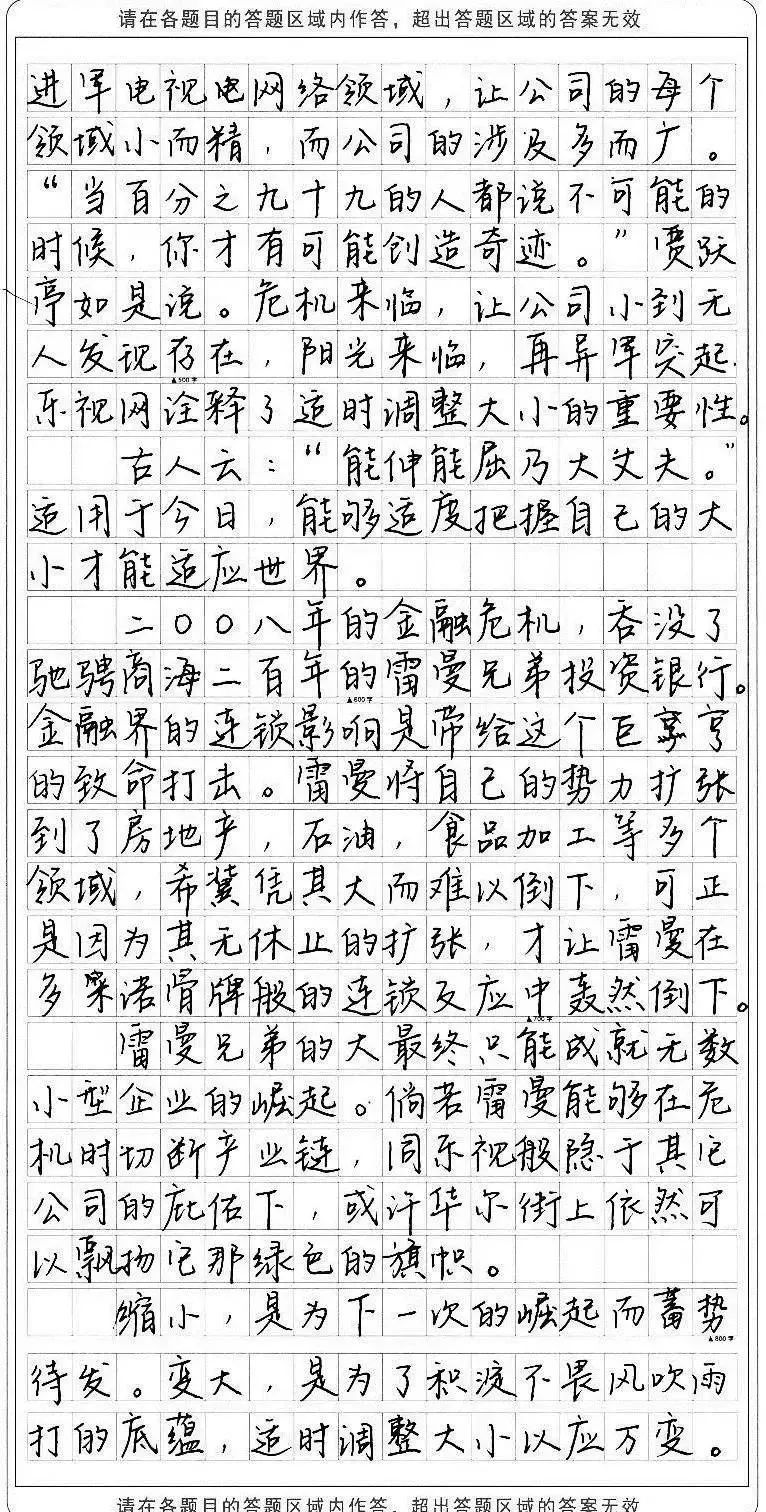 请在各题目的答题区域内作答，超出答题区域的答案无效
进军电视电网络领域，让公司的每个
领域小而精，而公司的涉及多而广。
“当百分之九十九的人都说不可能的
时候，你才有可能创造奇迹。”贾跃
亭如是说。危机来临，让公司小到无
人发现存在，阳光来临，再异军突起.
▲500字
乐视网诠释了适时调整大小的重要性。
古人云：“能伸能屈乃大丈夫。”
适用于今日，能够适度把握自己的大
小才能适应世界。
二〇〇八年的金融危机，吞没了
驰骋商海二百年的雷曼兄弟投资银行。
▲600字
金融界的连锁影响是带给这个巨亨
的致命打击。雷曼将自己的势力扩张
到了房地产，石油，食品加工等多个
领域，希冀凭其大而难以倒下，可正
是因为其无休止的扩张，才让雷曼在
多米诺骨牌般的连锁反应中轰然倒下。
▲700字
雷曼兄弟的大最终只能成就无数
小型企业的崛起。倘若雷曼能够在危
机时切断产业链，同乐视般隐于其它
公司的庇佑下，或许华尔街上依然可
以飘扬它那绿色的旗帜。
缩小，是为下一次的崛起而蓄势
▲800字
待发。变大，是为了积淀不畏风吹雨
打的底蕴，适时调整大小以应万变。
请在各题目的答题区域内作答，超出答题区域的答案无效